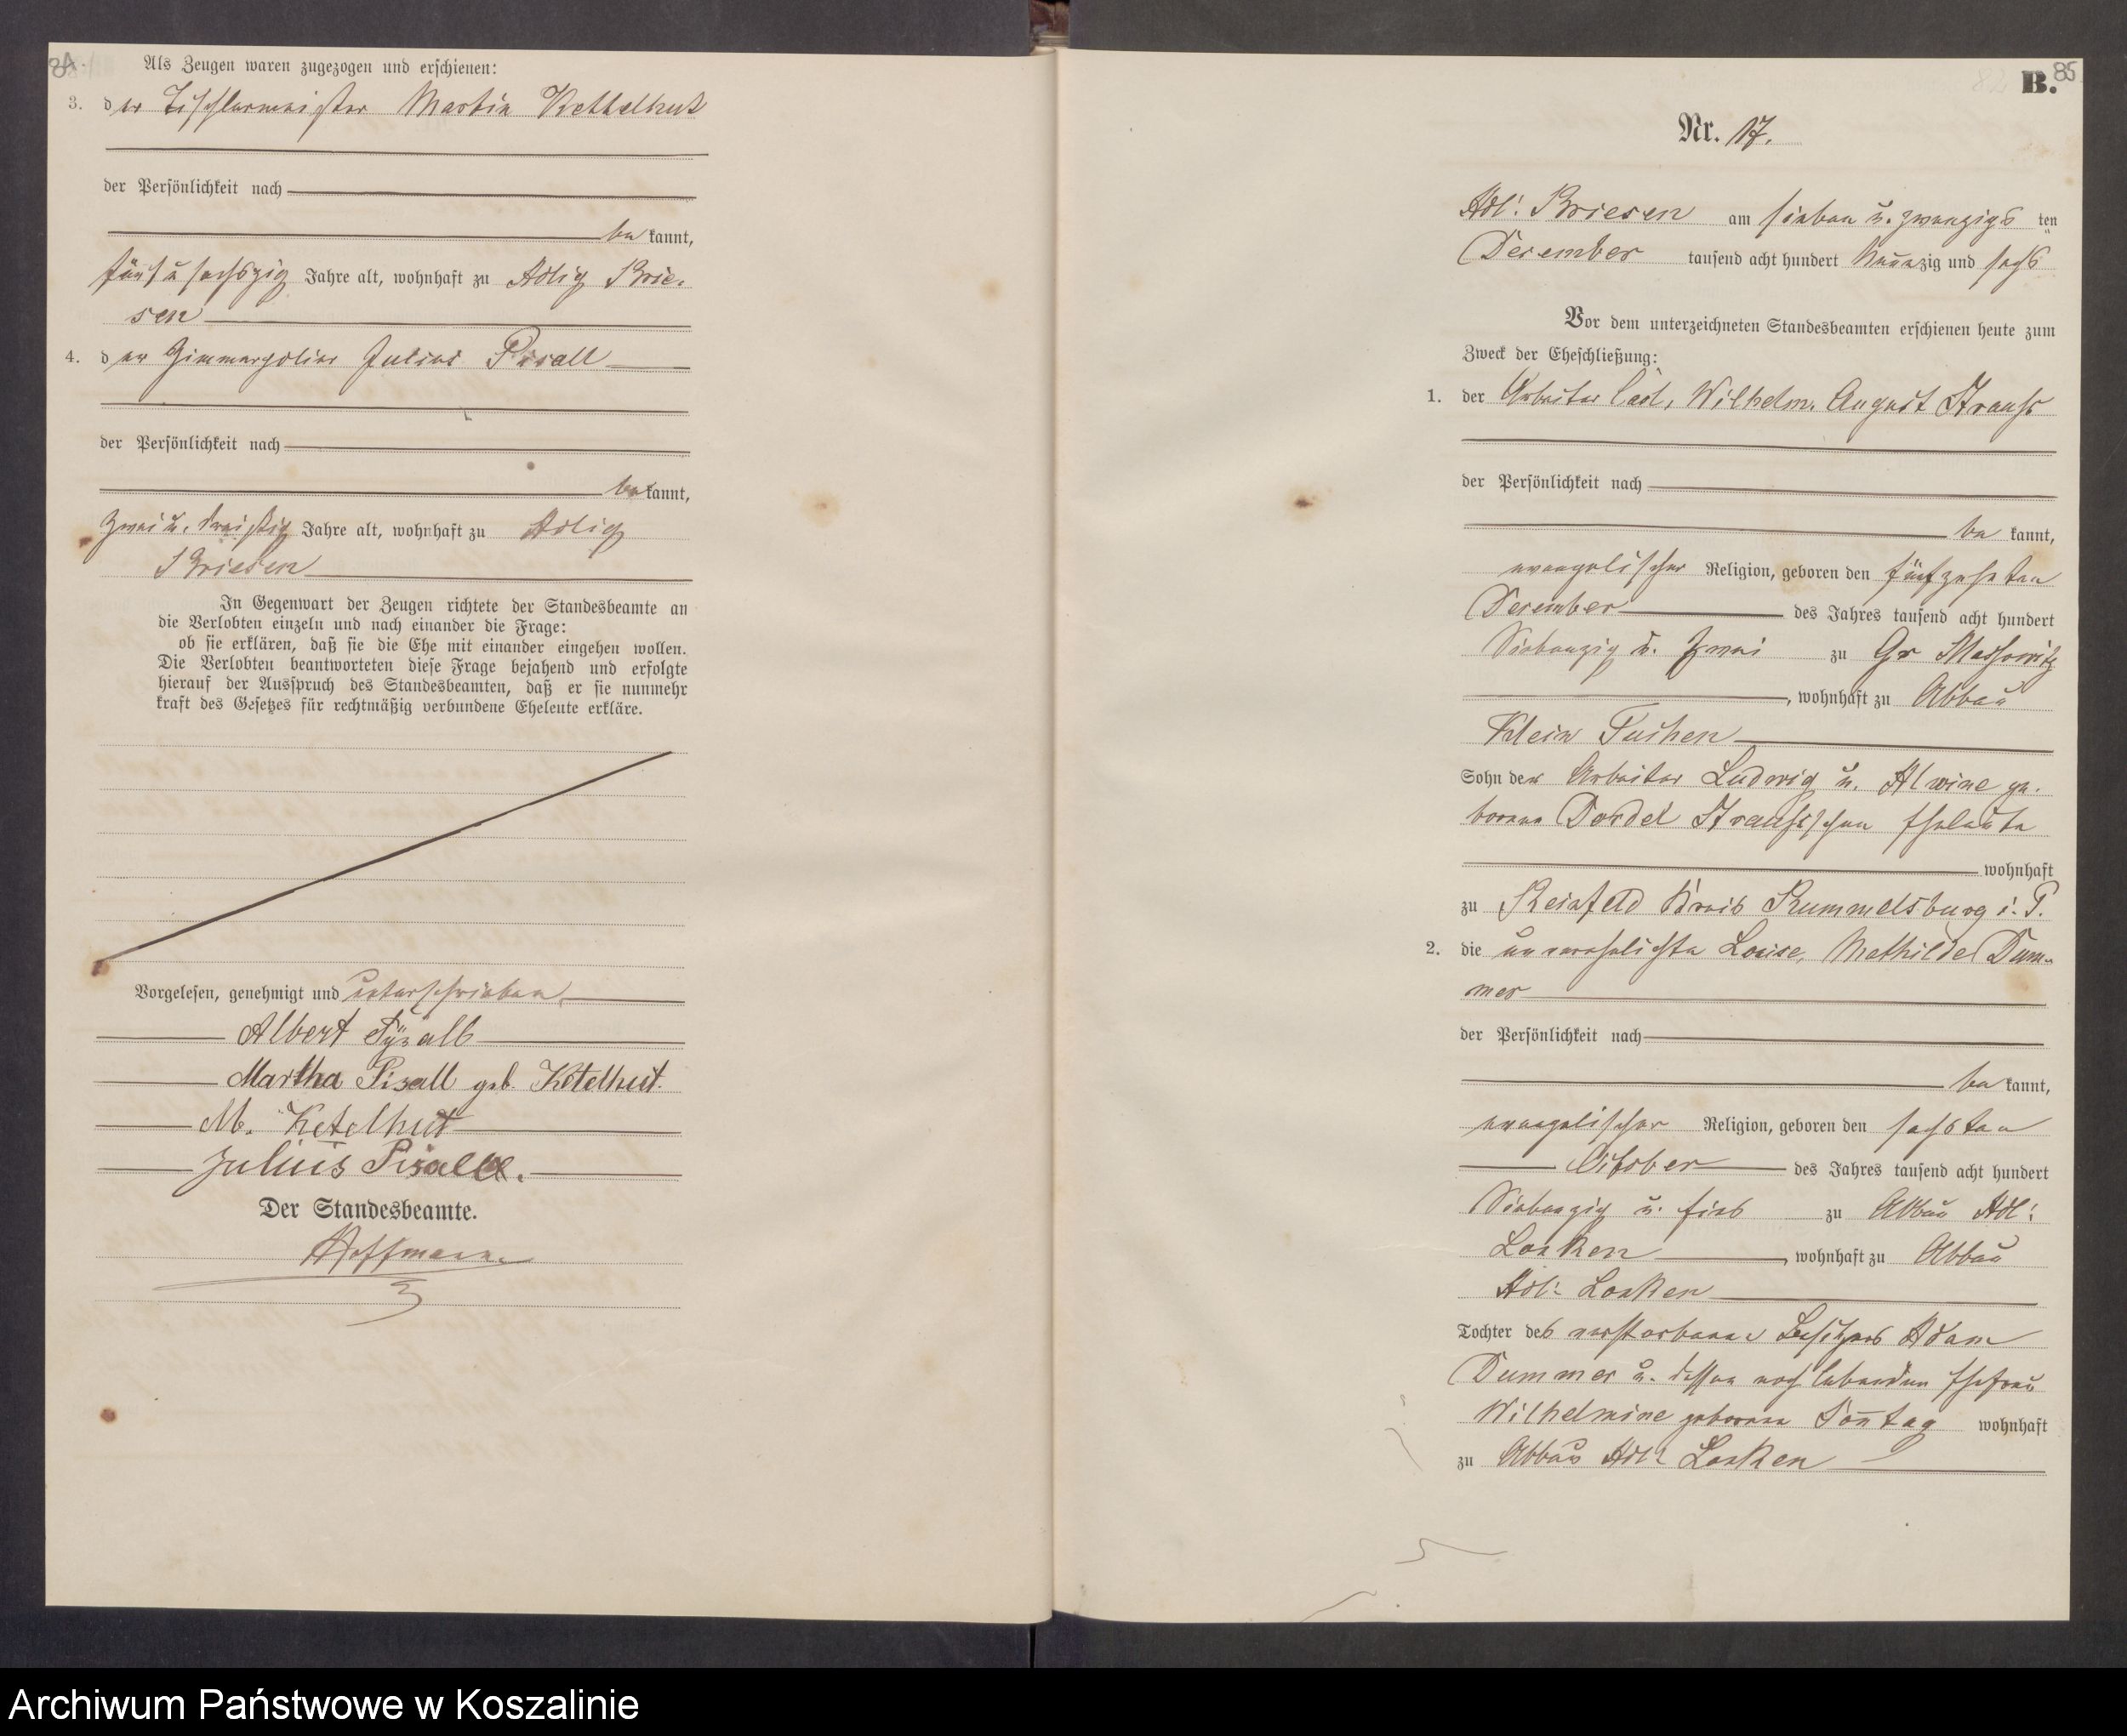 84.
Als Zeugen waren zugezogen und erschienen:
3. der Tischlermeister Martin Kettelhut
der Persönlichkeit nach
bekannt,
fünf u sechszig Jahre alt, wohnhaft zu Adlig Brie-
sen
4. der Julius Pisall
der Persönlichkeit nach
bekannt,
zwei u. dreißig Jahre alt, wohnhaft zu Adlig
Briesen
In Gegenwart der Zeugen richtete der Standesbeamte an
die Verlobten einzeln und nach einander die Frage:
ob sie erklären, daß sie die Ehe mit einander eingehen wollen.
Die Verlobten beantworteten diese Frage bejahend und erfolgte
hierauf der Ausspruch des Standesbeamten, daß er sie nunmehr
kraft des Gesetzes für rechtmäßig verbundene Eheleute erkläre.
Vorgelesen, genehmigt und unterschrieben
Albert
Martha Pisall geb. Ketelhut.
M. Ketelhut
Julius Pisall.
Der Standesbeamte.
Hoffmann
B. 85
Nr. 17.
Adl: Briesen am sieben u. zwanzigs ten
December tausend acht hundert Neunzig und sechs
Vor dem unterzeichneten Standesbeamten erschienen heute zum
Zweck der Eheschließung:
1. der Arbeiter Carl, Wilhelm. August Strauss
der Persönlichkeit nach
bekannt,
evangelischer Religion, geboren den fünfzehnten
December des Jahres tausend acht hundert
Siebenzig u. Zwei zu Gr Massowitz
, wohnhaft zu Abbau
Klein Tuchen
Sohn der Arbeiter Ludwig u. Alwine ge-
borene Dordel Strauss'schen Eheleute
wohnhaft
zu Reinfeld Kreis Rummelsburg i. P.
2. die unverehelichte Louise, Mathilde Dum-
mer
der Persönlichkeit nach
bekannt,
evangelischer Religion, geboren den sechsten
October des Jahres tausend acht hundert
Siebenzig u. fünf zu Abbau Adl:
Lonken, wohnhaft zu Abbau
Adl: Lonken
Tochter des verstorbenen Besitzers Adam
Dummer u. dessen noch lebenden Ehefrau
Wilhelmine geborene Sontag wohnhaft
zu Abbau Adl: Lonken
Archiwum Państwowe w Koszalinie